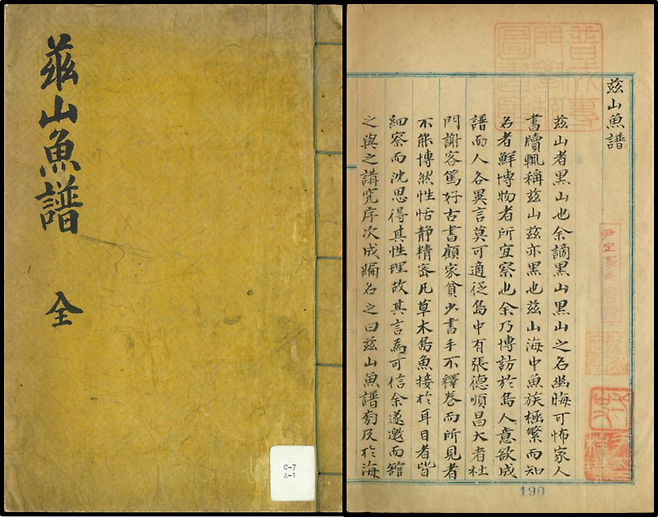 茲山魚譜 全
C-7
A-1
茲山魚譜
茲山者黑山也余謫黑山黑山之名幽晦可怖家人
書牘輒稱茲山茲亦黑也茲山海中魚族極繁而知
名者鮮博物者所宜察也余乃博訪於島人意欲成
譜而人各異言莫可適從島中有張德順昌大者杜
門謝客篤好古書顧家貧少書手不釋卷而所見者
不能博然性恬靜精密凡草木鳥魚接於耳目者皆
細察而沈思得其性理故其言爲可信余遂邀而館
之與之講究序次成編名之曰茲山魚譜旁及於海
190